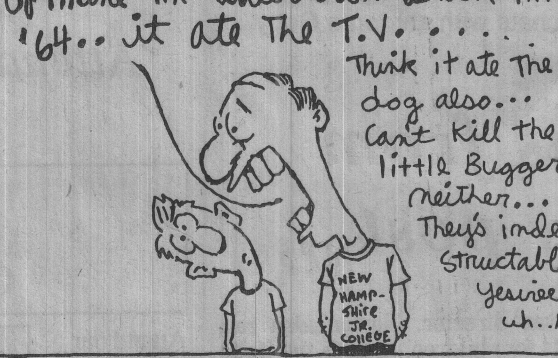 '64.. it ate The T.V. . . . . .
Think it ate The
dog also...
Can't Kill the
little Bugger
neither...
They's inde
Structabl
Yesiree
uh..
NEW
HAMP-
SHire
JR.
COllEGE